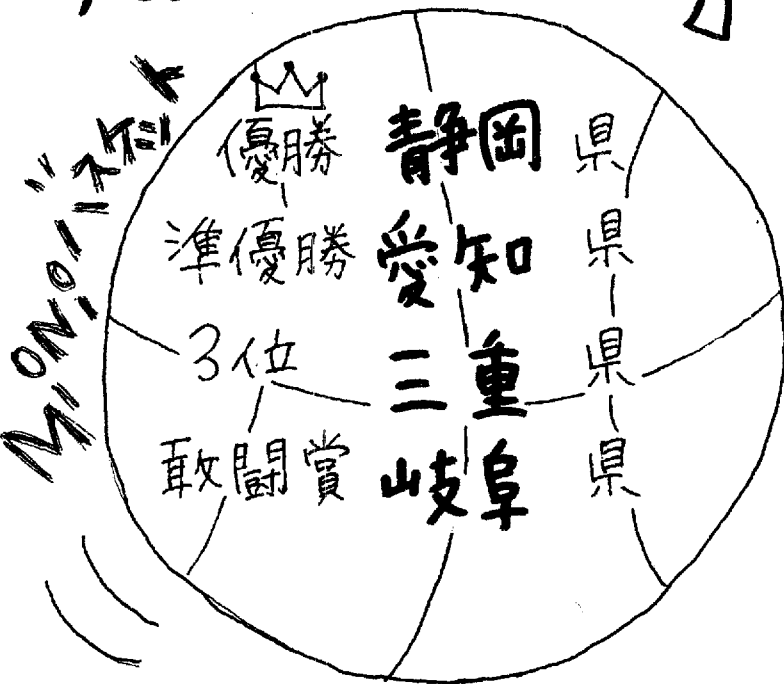 MiNiバスケット
優勝 静岡県
準優勝 愛知県
3位 三重県
敢闘賞 岐阜県